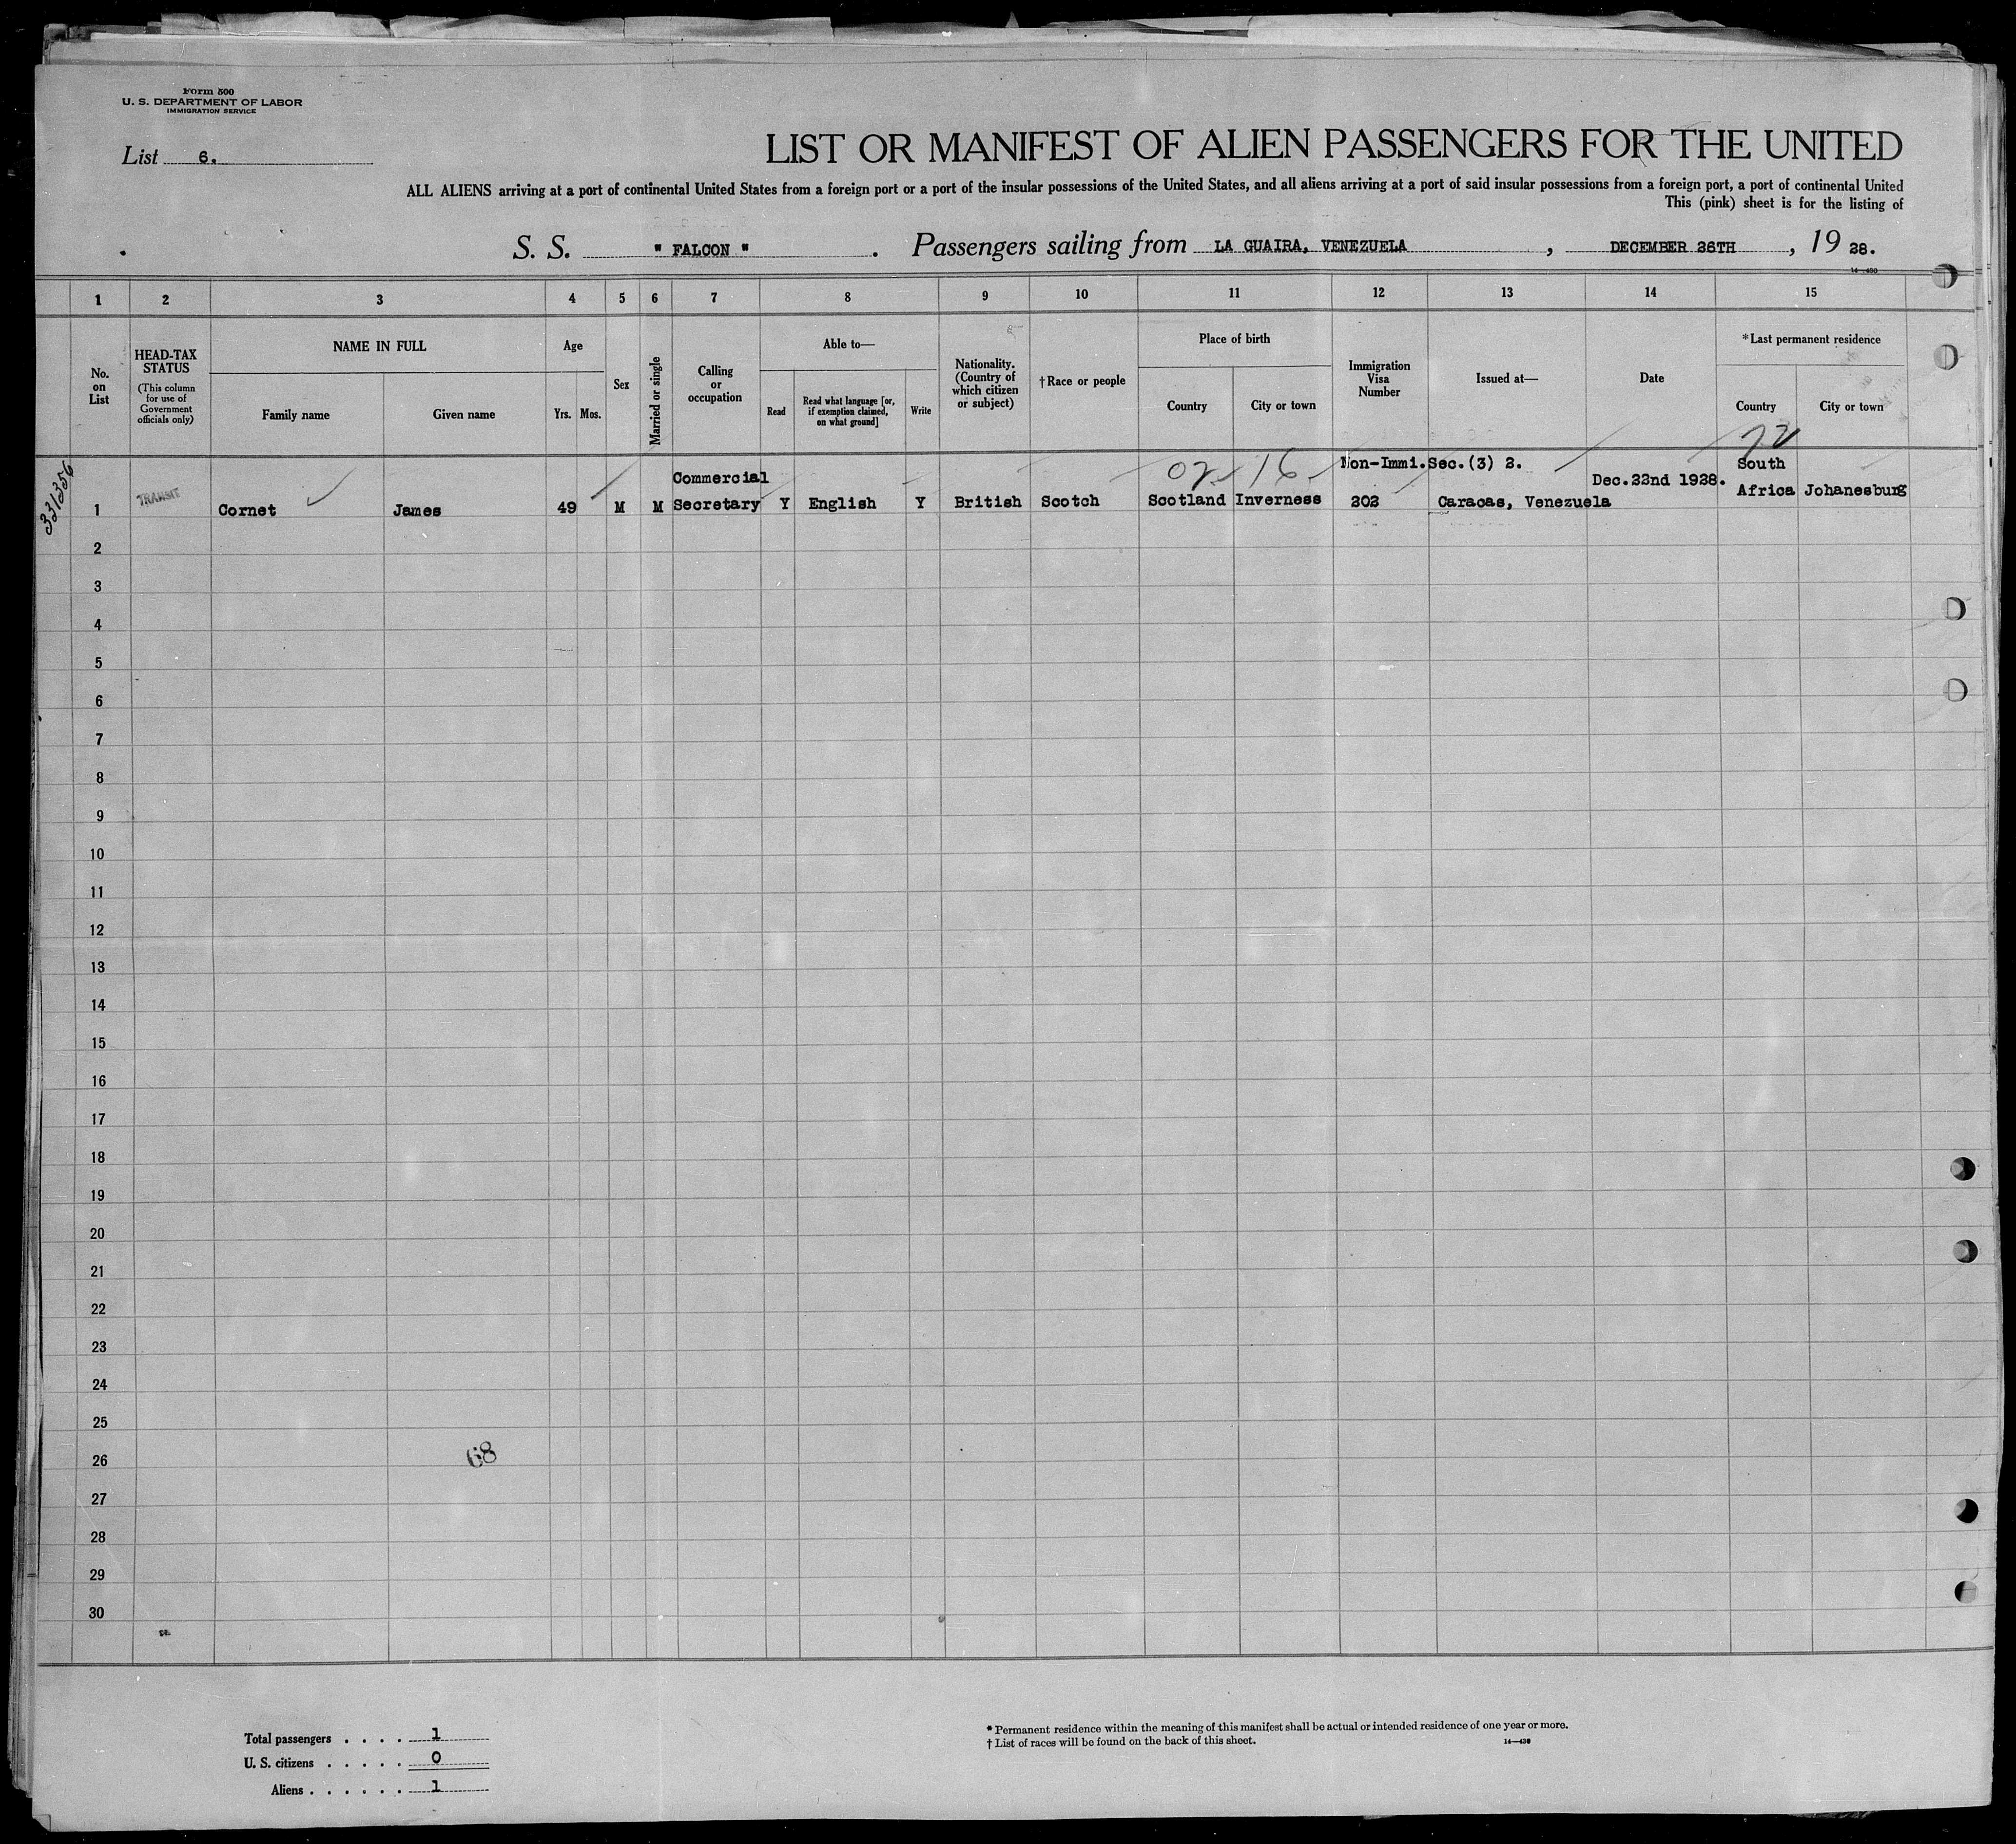 Form 500
U. S. DEPARTMENT OF LABOR
IMMIGRATION SERVICE
List 6.
LIST OR MANIFEST OF ALIEN PASSENGERS FOR THE UNITED
ALL ALIENS arriving at a port of continental United States from a foreign port or a port of the insular possessions of the United States, and all aliens arriving at a port of said insular possessions from a foreign port, a port of continental United
This (pink) sheet is for the listing of
S. S. " FALCON " . Passengers sailing from LA GUAIRA, VENEZUELA , DECEMBER 26TH , 19 28.
1 2 3 4 5 6 7 8 9 10 11 12 13 14 15
No. on List
HEAD-TAX STATUS
(This column for use of Government officials only)
NAME IN FULL
Family name Given name
Age
Yrs. Mos.
Sex
Married or single
Calling or occupation
Able to—
Read
Read what language [or, if exemption claimed, on what ground]
Write
Nationality. (Country of which citizen or subject)
†Race or people
Place of birth
Country City or town
Immigration Visa Number
Issued at—
Date
*Last permanent residence
Country City or town
72
331356
02 16
1 TRANSIT Cornet James 49 M M Commercial Secretary Y English Y British Scotch Scotland Inverness Non-Immi.Sec.(3) 2. 202 Caracas, Venezuela Dec.22nd 1928. South Africa Johanesburg
2
3
4
5
6
7
8
9
10
11
12
13
14
15
16
17
18
19
20
21
22
23
24
25
26
68
27
28
29
30
Total passengers . . . . 1
U. S. citizens . . . . . 0
Aliens . . . . . . 1
* Permanent residence within the meaning of this manifest shall be actual or intended residence of one year or more.
† List of races will be found on the back of this sheet.